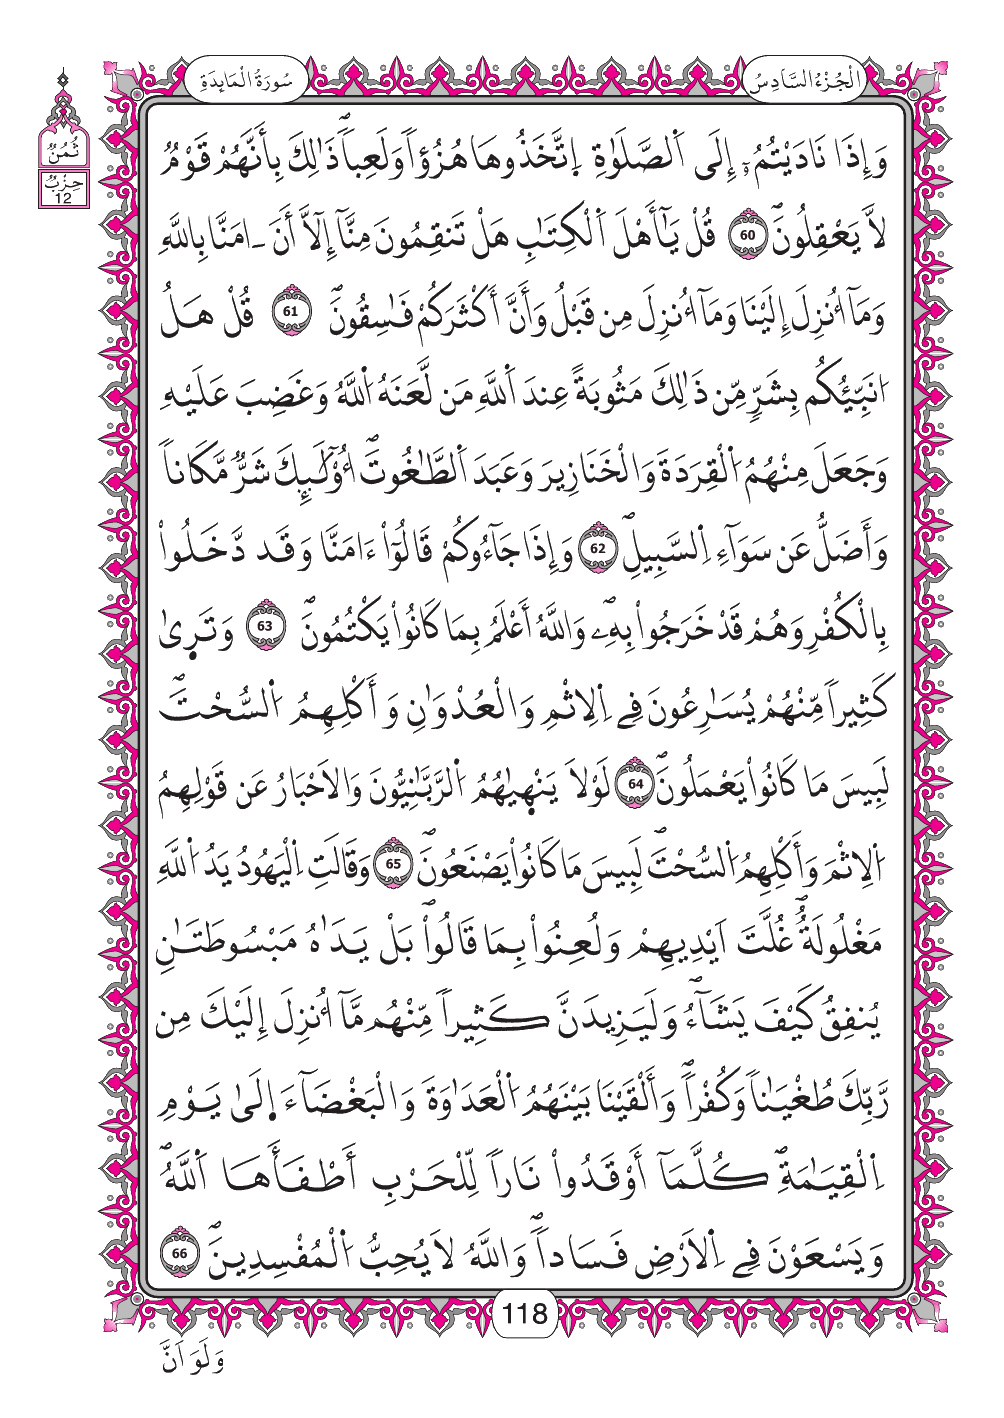 الْجُزْءُ السَّادِسُ
سُورَةُ الْمَائِدَةِ
ثُمُنُ
حِزْبُ
12
وَإِذَا نَادَيْتُمُۥٓ إِلَى اَ۬لصَّلَوٰةِ اِ۪تَّخَذُوهَا هُزُؤاٗ وَلَعِباٗۖ ذَٰلِكَ بِأَنَّهُمْ قَوْمٞ
لَّا يَعْقِلُونَۖ 60 قُلْ يَٰٓأَهْلَ اَ۬لْكِتَٰبِ هَلْ تَنقِمُونَ مِنَّآ إِلَّآ أَنَ اٰمَنَّا بِاللَّهِ
وَمَآ أُنزِلَ إِلَيْنَا وَمَآ أُنزِلَ مِن قَبْلُ وَأَنَّ أَكْثَرَكُمْ فَٰسِقُونَۖ 61 قُلْ هَلُ
ا۟نَبِّيُكُم بِشَرّٖ مِّن ذَٰلِكَ مَثُوبَةً عِندَ اَ۬للَّهِ مَن لَّعَنَهُ اُ۬للَّهُ وَغَضِبَ عَلَيْهِ
وَجَعَلَ مِنْهُمُ اُ۬لْقِرَدَةَ وَالْخَنَازِيرَ وَعَبَدَ اَ۬لطَّٰغُوتَۖ أُوْلَٰٓئِكَ شَرّٞ مَّكَاناٗ
وَأَضَلُّ عَن سَوَآءِ اِ۬لسَّبِيلِۖ 62 وَإِذَا جَآءُوكُمْ قَالُوٓاْ ءَامَنَّا وَقَد دَّخَلُواْ
بِالْكُفْرِ وَهُمْ قَدْ خَرَجُواْ بِهِۦۖ وَاللَّهُ أَعْلَمُ بِمَا كَانُواْ يَكْتُمُونَۖ 63 وَتَر۪ىٰ
كَثِيراٗ مِّنْهُمْ يُسَٰرِعُونَ فِے اِ۬لِاثْمِ وَالْعُدْوَٰنِ وَأَكْلِهِمُ اُ۬لسُّحْتَۖ
لَبِيسَ مَا كَانُواْ يَعْمَلُونَۖ 64 لَوْلَا يَنْه۪يٰهُمُ اُ۬لرَّبَّٰنِيُّونَ وَالَاحْبَارُ عَن قَوْلِهِمُ
اُ۬لِاثْمَ وَأَكْلِهِمُ اُ۬لسُّحْتَۖ لَبِيسَ مَا كَانُواْ يَصْنَعُونَۖ 65 وَقَالَتِ اِ۬لْيَهُودُ يَدُ اُ۬للَّهِ
مَغْلُولَةٌۖ غُلَّتَ اَيْدِيهِمْ وَلُعِنُواْ بِمَا قَالُواْۖ بَلْ يَدَٰهُ مَبْسُوطَتَٰنِ
يُنفِقُ كَيْفَ يَشَآءُۖ وَلَيَزِيدَنَّ كَثِيراٗ مِّنْهُم مَّآ أُنزِلَ إِلَيْكَ مِن
رَّبِّكَ طُغْيَٰناٗ وَكُفْراٗۖ وَأَلْقَيْنَا بَيْنَهُمُ اُ۬لْعَدَٰوَةَ وَالْبَغْضَآءَ اِ۪لَىٰ يَوْمِ
اِ۬لْقِيَٰمَةِۖ كُلَّمَآ أَوْقَدُواْ نَاراٗ لِّلْحَرْبِ أَطْفَأَهَا اَ۬للَّهُۖ
وَيَسْعَوْنَ فِے اِ۬لَارْضِ فَسَاداٗۖ وَاللَّهُ لَا يُحِبُّ اُ۬لْمُفْسِدِينَۖ 66
118
وَلَوَ اَنَّ